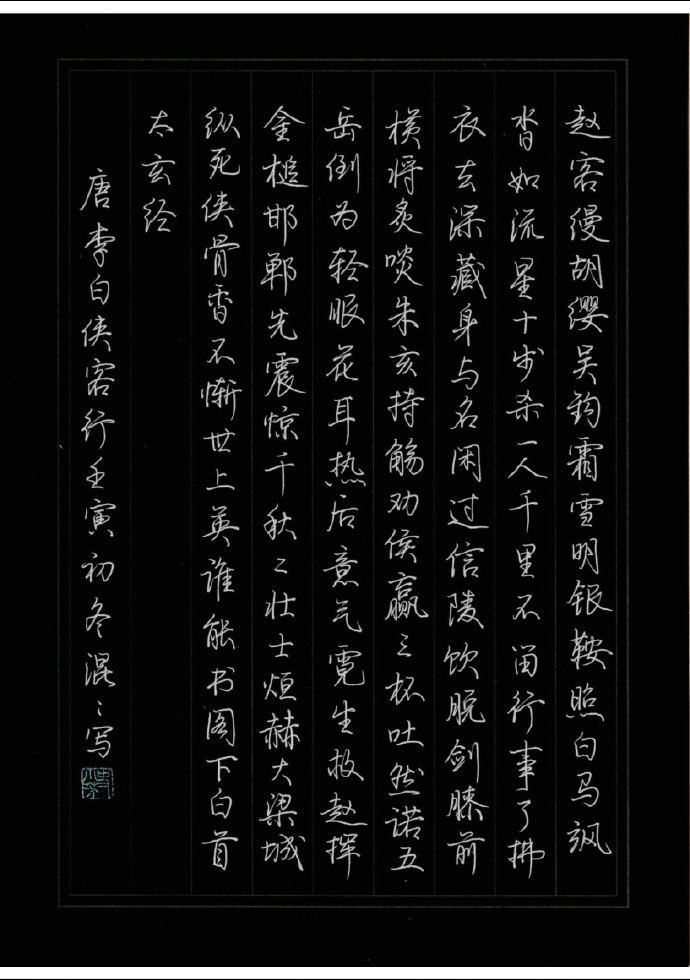 赵客缦胡缨吴钩霜雪明银鞍照白马飒
沓如流星十步杀一人千里不留行事了拂
衣去深藏身与名闲过信陵饮脱剑膝前
横将炙啖朱亥持觞劝侯嬴三杯吐然诺五
岳倒为轻眼花耳热后意气霓生救赵挥
金槌邯郸先震惊千秋二壮士烜赫大梁城
纵死侠骨香不惭世上英谁能书阁下白首
太玄经
唐李白侠客行壬寅初冬混混写